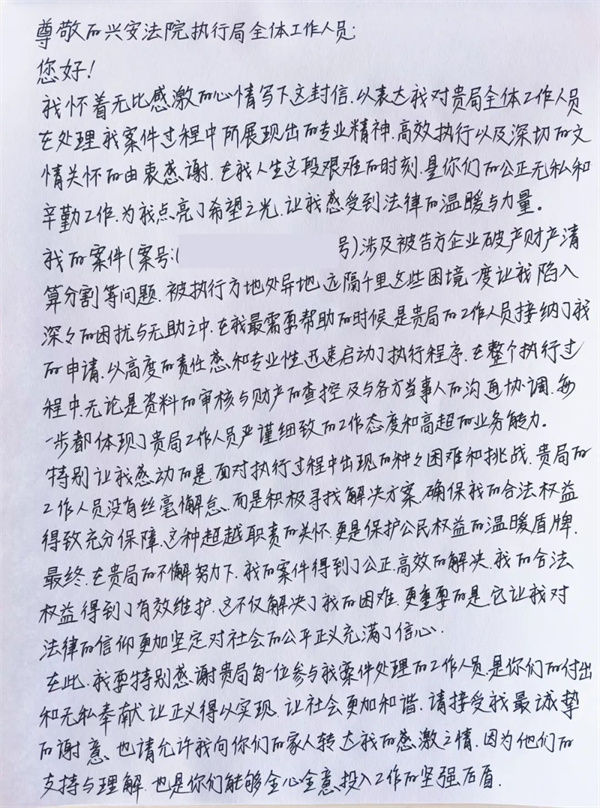 尊敬的兴安法院执行局全体工作人员:
您好!
我怀着无比感激的心情写下这封信,以表达我对贵局全体工作人员
在处理我案件过程中所展现出的专业精神,高效执行以及深切的文
情关怀的由衷感谢.在我人生这段艰难的时刻,是你们的公正无私和
辛勤工作,为我点亮了希望之光,让我感受到法律的温暖与力量。
我的案件(案号:( 号)涉及被告方企业破产财产清
算分割等问题.被执行方地处异地,远隔千里这些困境一度让我陷入
深々的困扰与无助之中.在我最需要帮助的时候,是贵局的工作人员接纳了我
的申请.以高度的责任感和专业性,迅速启动了执行程序.在整个执行过
程中,无论是资料的审核与财产的查控及与各方当事人的沟通协调.每
一步都体现了贵局工作人员严谨细致的工作态度和高超的业务能力.
特别让我感动的是,面对执行过程中出现的种々困难和挑战.贵局的
工作人员没有丝毫懈怠.而是积极寻找解决方案,确保我的合法权益
得致充分保障.这种超越职责的关怀.更是保护公民权益的温暖盾牌.
最终,在贵局的不懈努力下,我的案件得到了公正,高效的解决.我的合法
权益得到了有效维护.这不仅解决了我的困难.更重要的是,它让我对
法律的信仰更加坚定对社会的公平正义充满了信心.
在此,我要特别感谢贵局每一位参与我案件处理的工作人员,是你们的付出
和无私奉献,让正义得以实现,让社会更加和谐.请接受我最诚挚
的谢意.也请允许我向你们的家人转达我的感激之情.因为他们的
支持与理解.也是你们能够全心全意投入工作的坚强后盾.